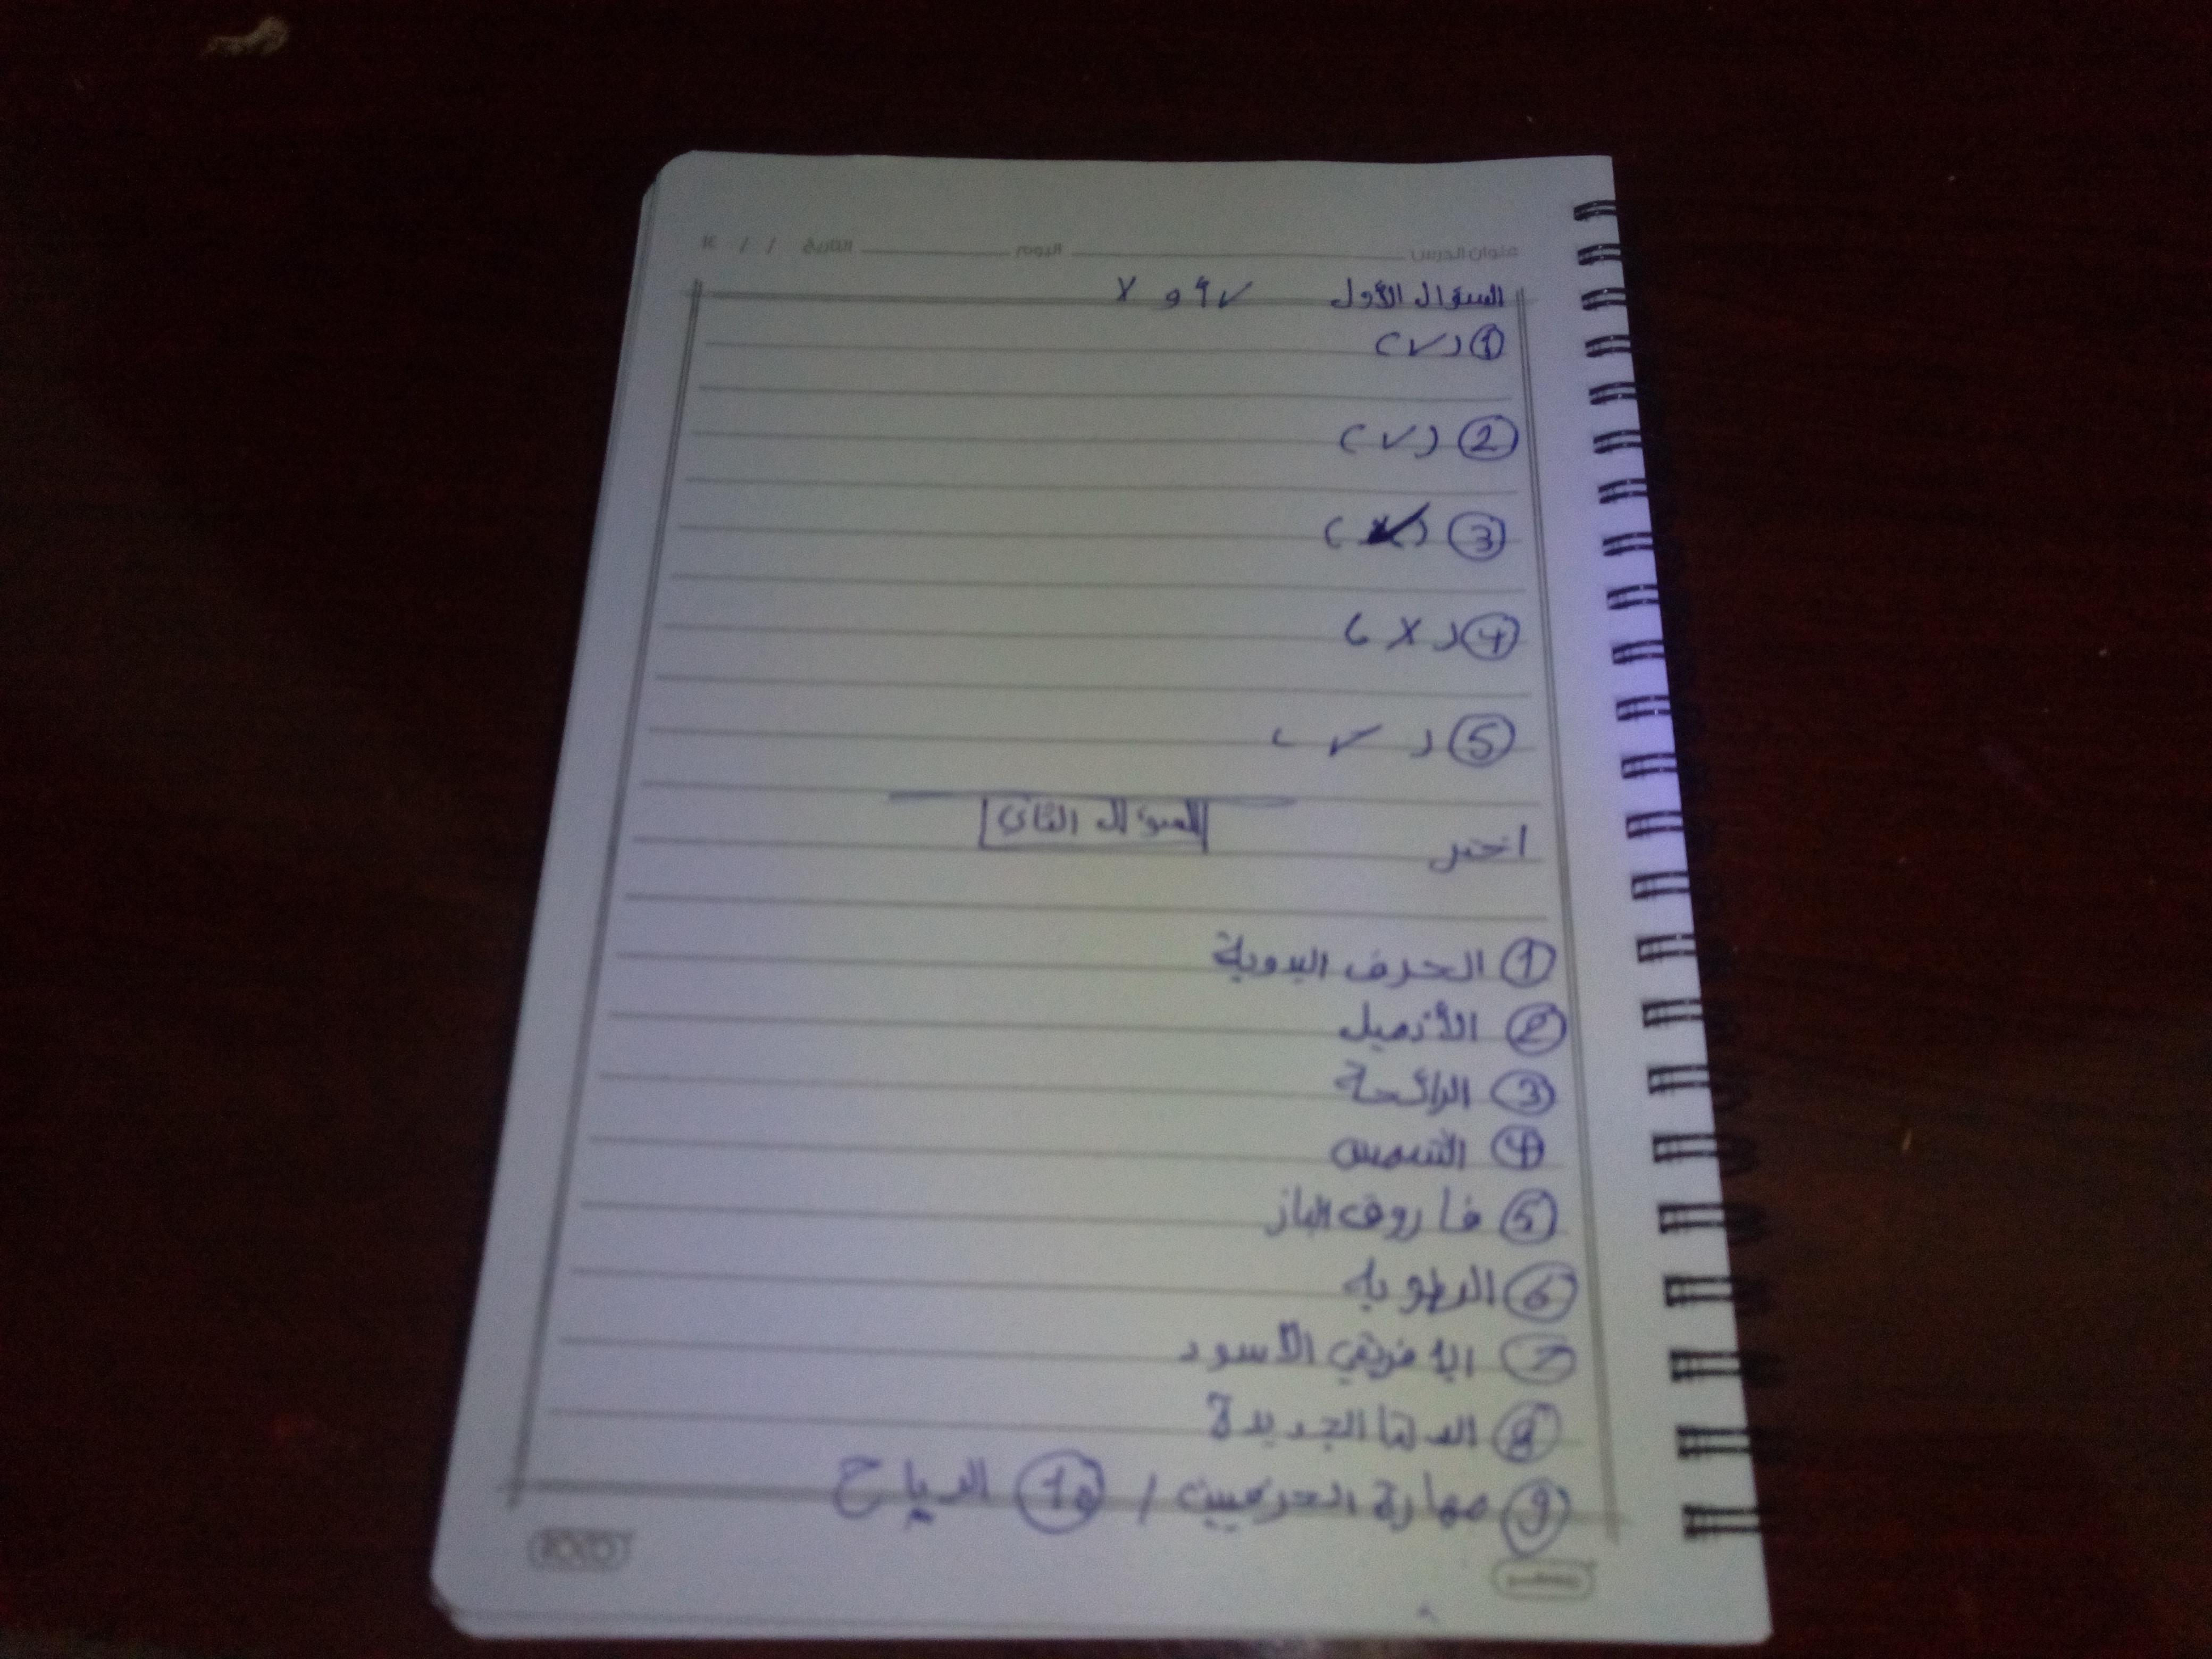 عنوان الدرس اليوم التاريخ / / ١٤
السؤال الأول ✓ أو X
① (✓)
② (✓)
③ (✓)
④ (X)
⑤ (✓)
السؤال الثاني
اختر
① الحرف اليدوية
② الأزميل
③ الرائحة
④ الشمس
⑤ فاروق الباز
⑥ الرطوبة
⑦ الإفريقي الأسود
⑧ الدلتا الجديدة
⑨ مهارة الحرفيين / ⑩ الرياح